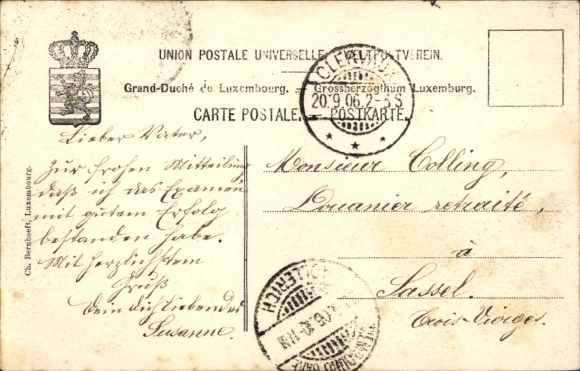 UNION POSTALE UNIVERSELLE. WELTPOSTVEREIN.
Grand-Duché de Luxembourg. — Grossherzogthum Luxemburg.
CARTE POSTALE. — POSTKARTE.
CLERVAUX
20 9.06.2-3S
Lieber Vater,
Zur frohen Mitteilung
daß ich das Examen
mit gutem Erfolg
bestanden habe.
Mit herzlichstem
Gruß
Dein dich liebendes
Susanne.
Monsieur Colling,
Douanier retraité,
à
Sassel.
Trois-Vierges.
Ch. Bernhoeft, Luxembourg.